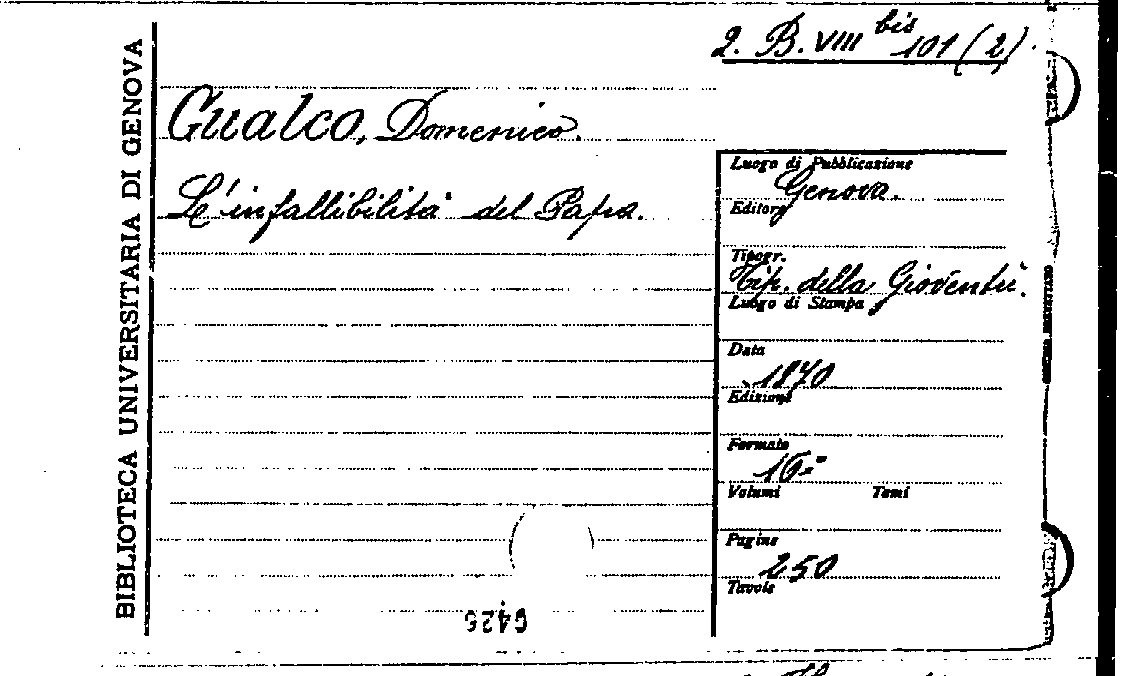 2. B. VIII bis 101 (2).
BIBLIOTECA UNIVERSITARIA DI GENOVA
Gualco, Domenico.
L'infallibilità del Papa.
Luogo di Pubblicazione
Genova.
Editore
Tipogr.
Tip. della Gioventù.
Luogo di Stampa
Data
1870
Edizione
Formato
16.°
Volumi Tomi
Pagine
250
Tavole